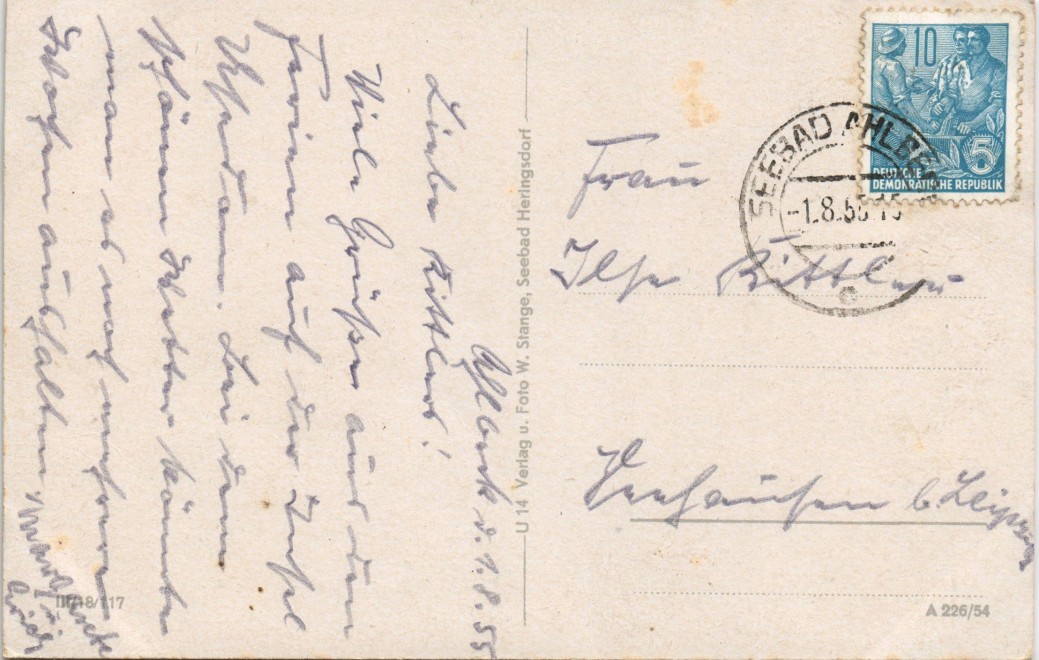 Ahlbeck d. 1.8.55
Liebe Kittlers!
Viele Grüße aus den
Ferien auf der Insel
Usedom. Bei dem
schönen Wetter könnte
man es noch mehrere
Wochen aushalten
u.
III/18/117
U 14 Verlag u. Foto W. Stange, Seebad Heringsdorf
10
5
DEUTSCHE
DEMOKRATISCHE REPUBLIK
SEEBAD AHLBECK
-1.8.55
Frau
Ilse Kittler
Seehausen b. Leipzig
A 226/54